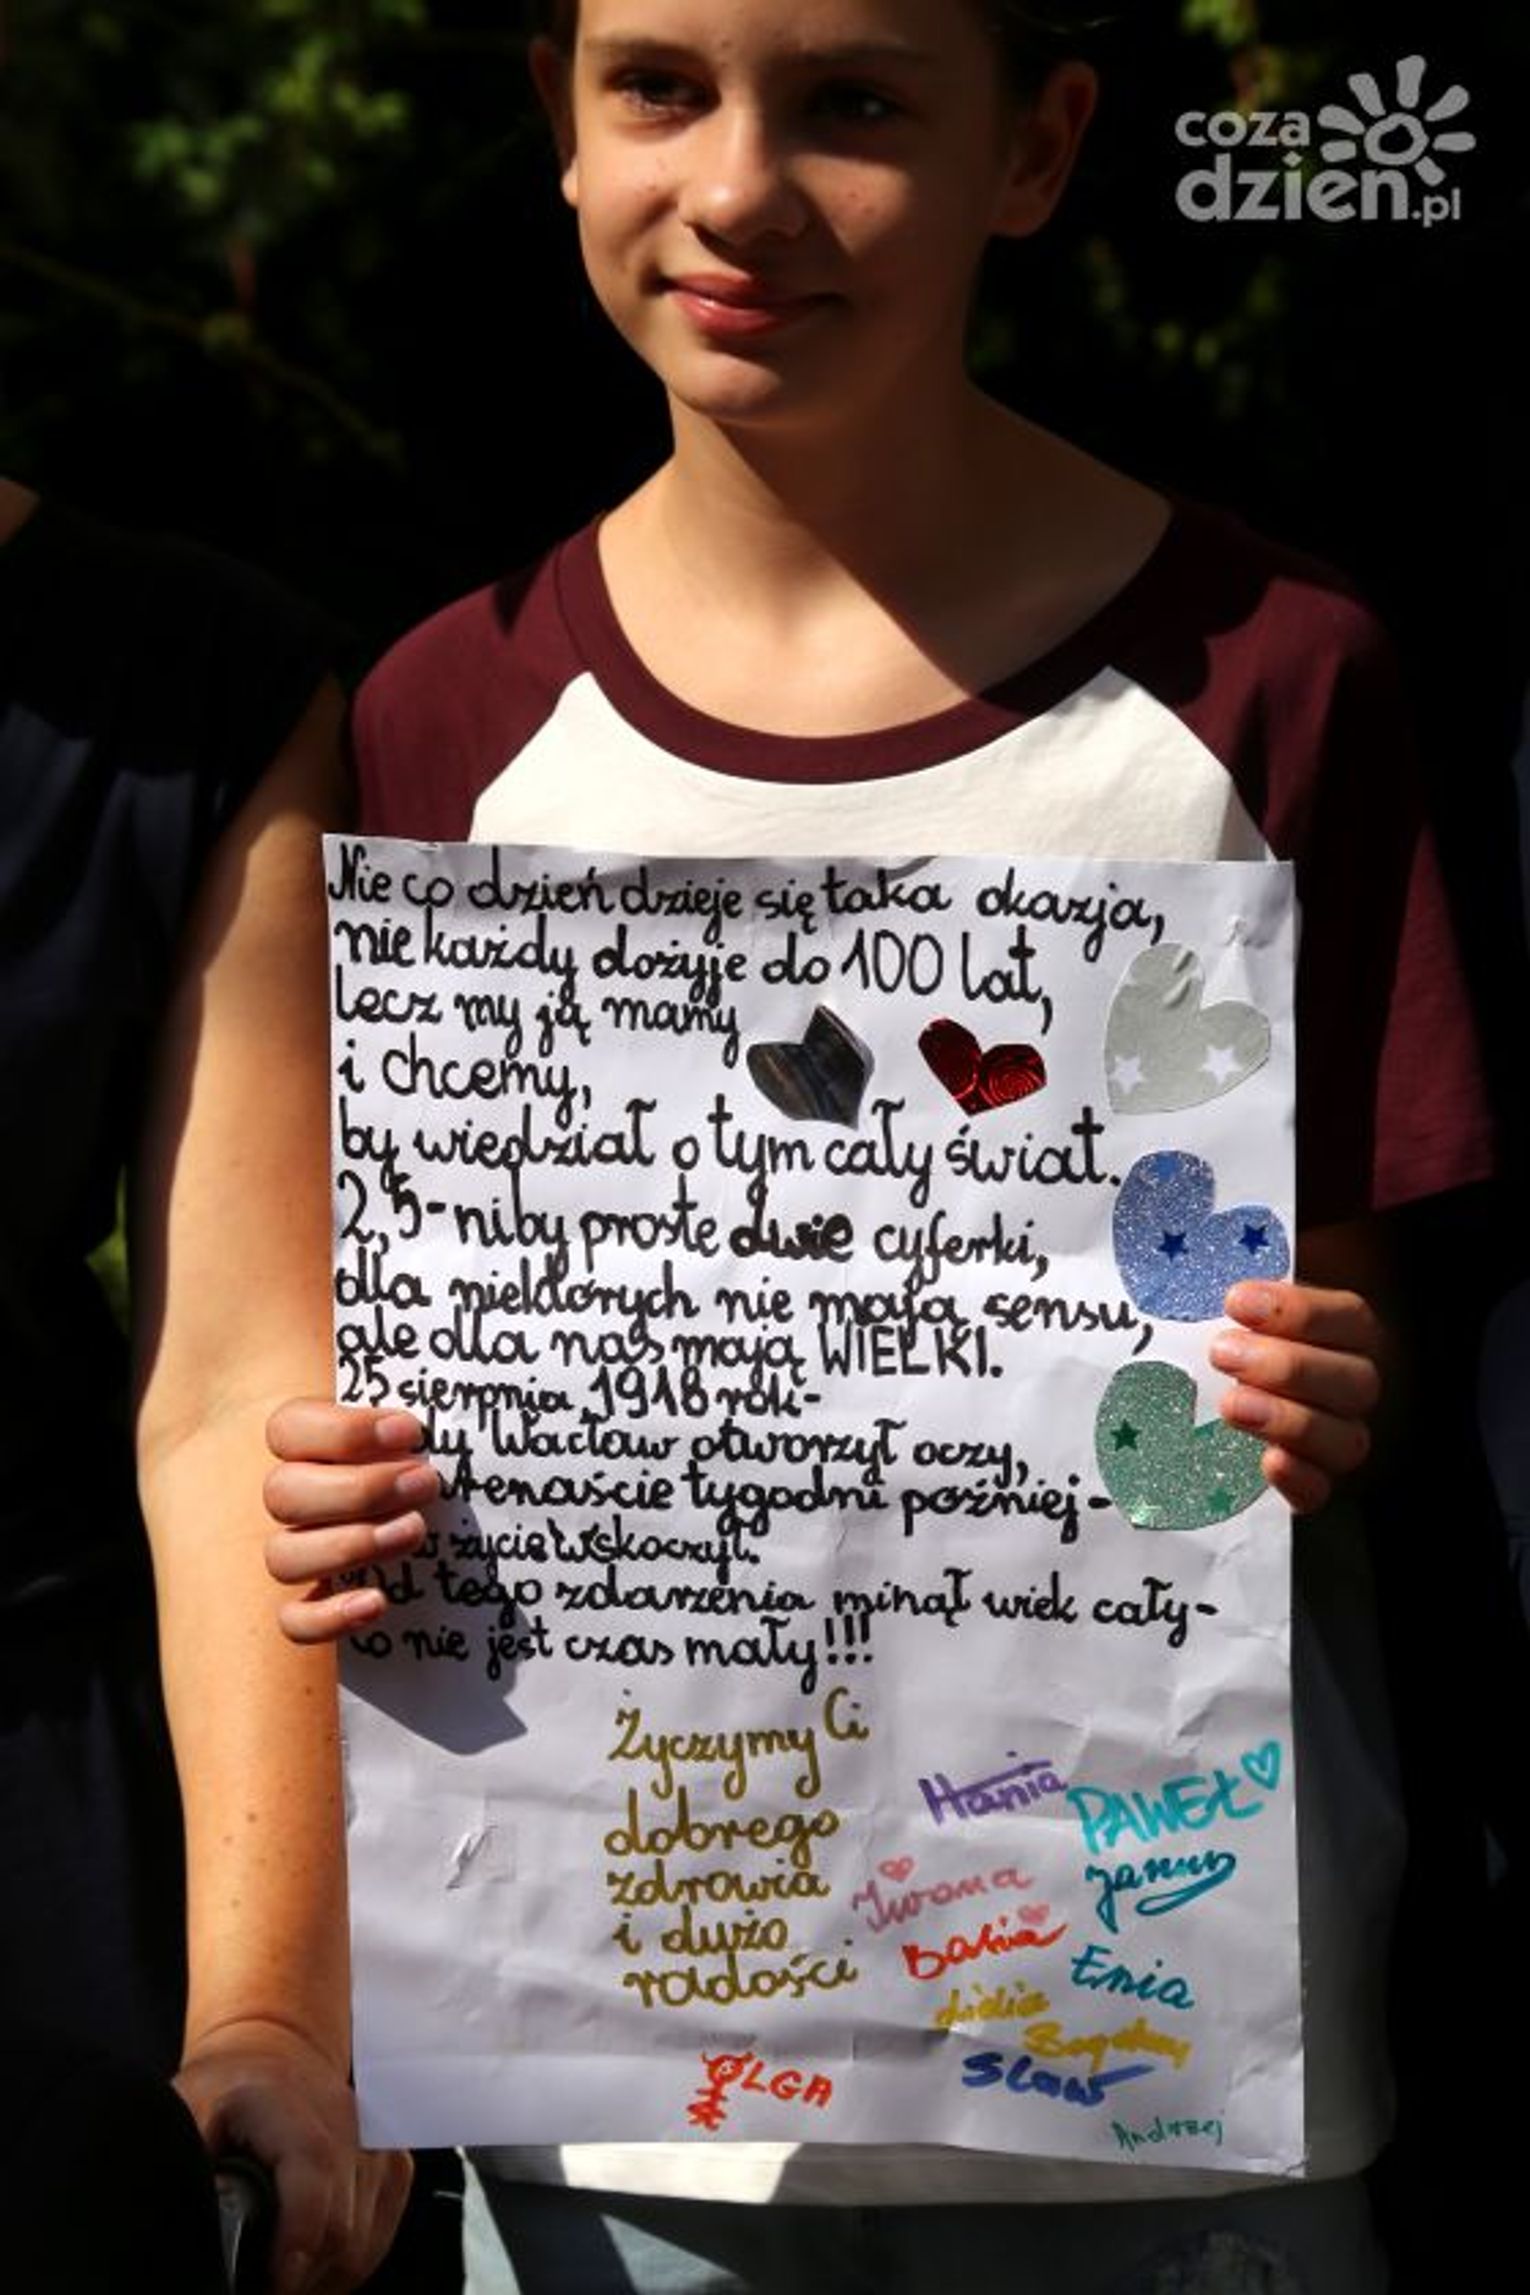 coza
dzien.pl
Nie co dzień dzieje się taka okazja,
nie każdy dożyje do 100 lat,
lecz my ją mamy
i chcemy,
by wiedział o tym cały świat.
2,5-niby proste dwie cyferki,
dla niektórych nie mają sensu,
ale dla nas mają WIELKI.
25 sierpnia 1918 rok-
Wacław otworzył oczy,
tygodni później-
w życie wskoczył.
Od tego zdarzenia minął wiek cały-
to nie jest czas mały!!!
Życzymy Ci
dobrego
zdrowia
i dużo
radości
Hania
PAWEŁ
Janusz
Iwona
Basia
Enia
Lidia
Bogdan
Sław
OLGA
Andrzej